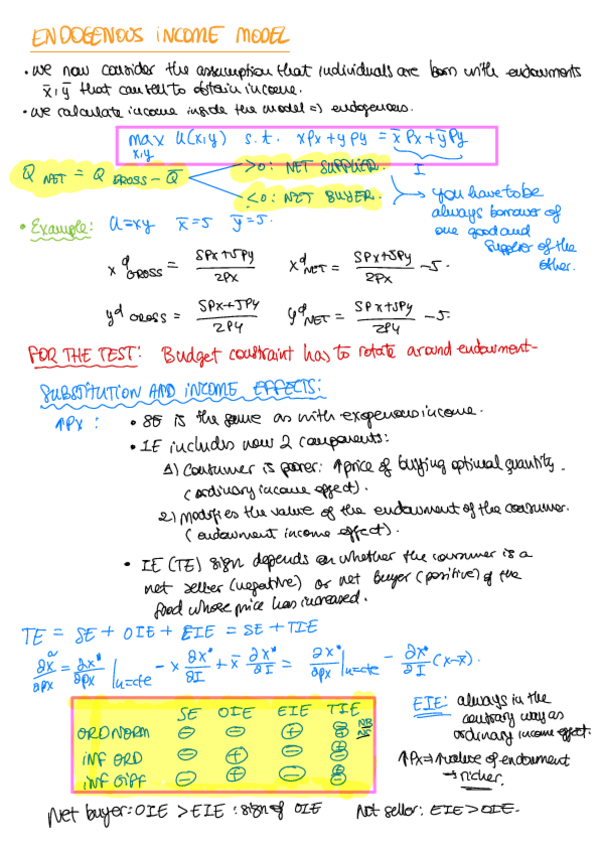 ENDOGENOUS INCOME MODEL
• We now consider the assumption that individuals are born with endowments
x̄, ȳ that can sell to obtain income.
• We calculate income inside the model => endogenous.
max U(x,y) s.t. xPx + yPy = x̄Px + ȳPy
x,y
I
Q NET = Q GROSS - Q̄
>0: NET SUPPLIER.
<0: NET BUYER.
you have to be
always borrower of
one good and
supplier of the
other.
• Example: U=xy x̄=5 ȳ=5.
x^d GROSS = (5Px+5Py)/2Px x^d NET = (5Px+5Py)/2Px - 5.
y^d GROSS = (5Px+5Py)/2Py y^d NET = (5Px+5Py)/2Py - 5.
FOR THE TEST: Budget constraint has to rotate around endowment-
SUBSTITUTION AND INCOME EFFECTS:
↑Px : • SE is the same as with exogenous income.
• IE includes now 2 components:
1) Consumer is poorer: ↑price of buying optimal quantity.
(ordinary income effect).
2) Modifies the value of the endowment of the consumer.
(endowment income effect).
• IE (TE) sign depends on whether the consumer is a
net seller (negative) or net buyer (positive) of the
good whose price has increased.
TE = SE + OIE + EIE = SE + TIE
∂x̃/∂px = ∂x*/∂px |u=cte - x ∂x*/∂I + x̄ ∂x*/∂I = ∂x*/∂px |u=cte - ∂x*/∂I (x-x̄).
SE OIE EIE TIE
ORD NORM ⊖ ⊖ ⊕
INF ORD ⊖ ⊕ ⊖
INF GIFF ⊖ ⊕ ⊖
EIE: always in the
contrary way as
ordinary income effect.
↑Px => ↑value of endowment
→ richer.
Net buyer: OIE > EIE : sign of OIE Net seller: EIE > OIE.